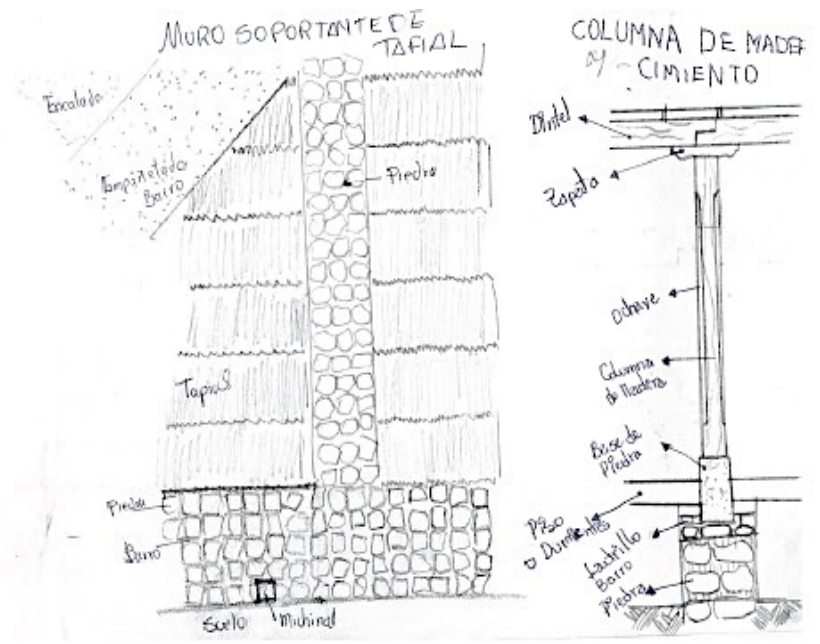 MURO SOPORTANTE DE
TAPIAL
Encalado
Empañetado
Barro
Piedra
Tapial
Piedra
Barro
Suelo
Michinal
COLUMNA DE MADER
Y CIMIENTO
Dintel
Zapata
Ochave
Columna
de Madera
Base de
Piedra
Piso
o Durmientes
Ladrillo
Barro
Piedra